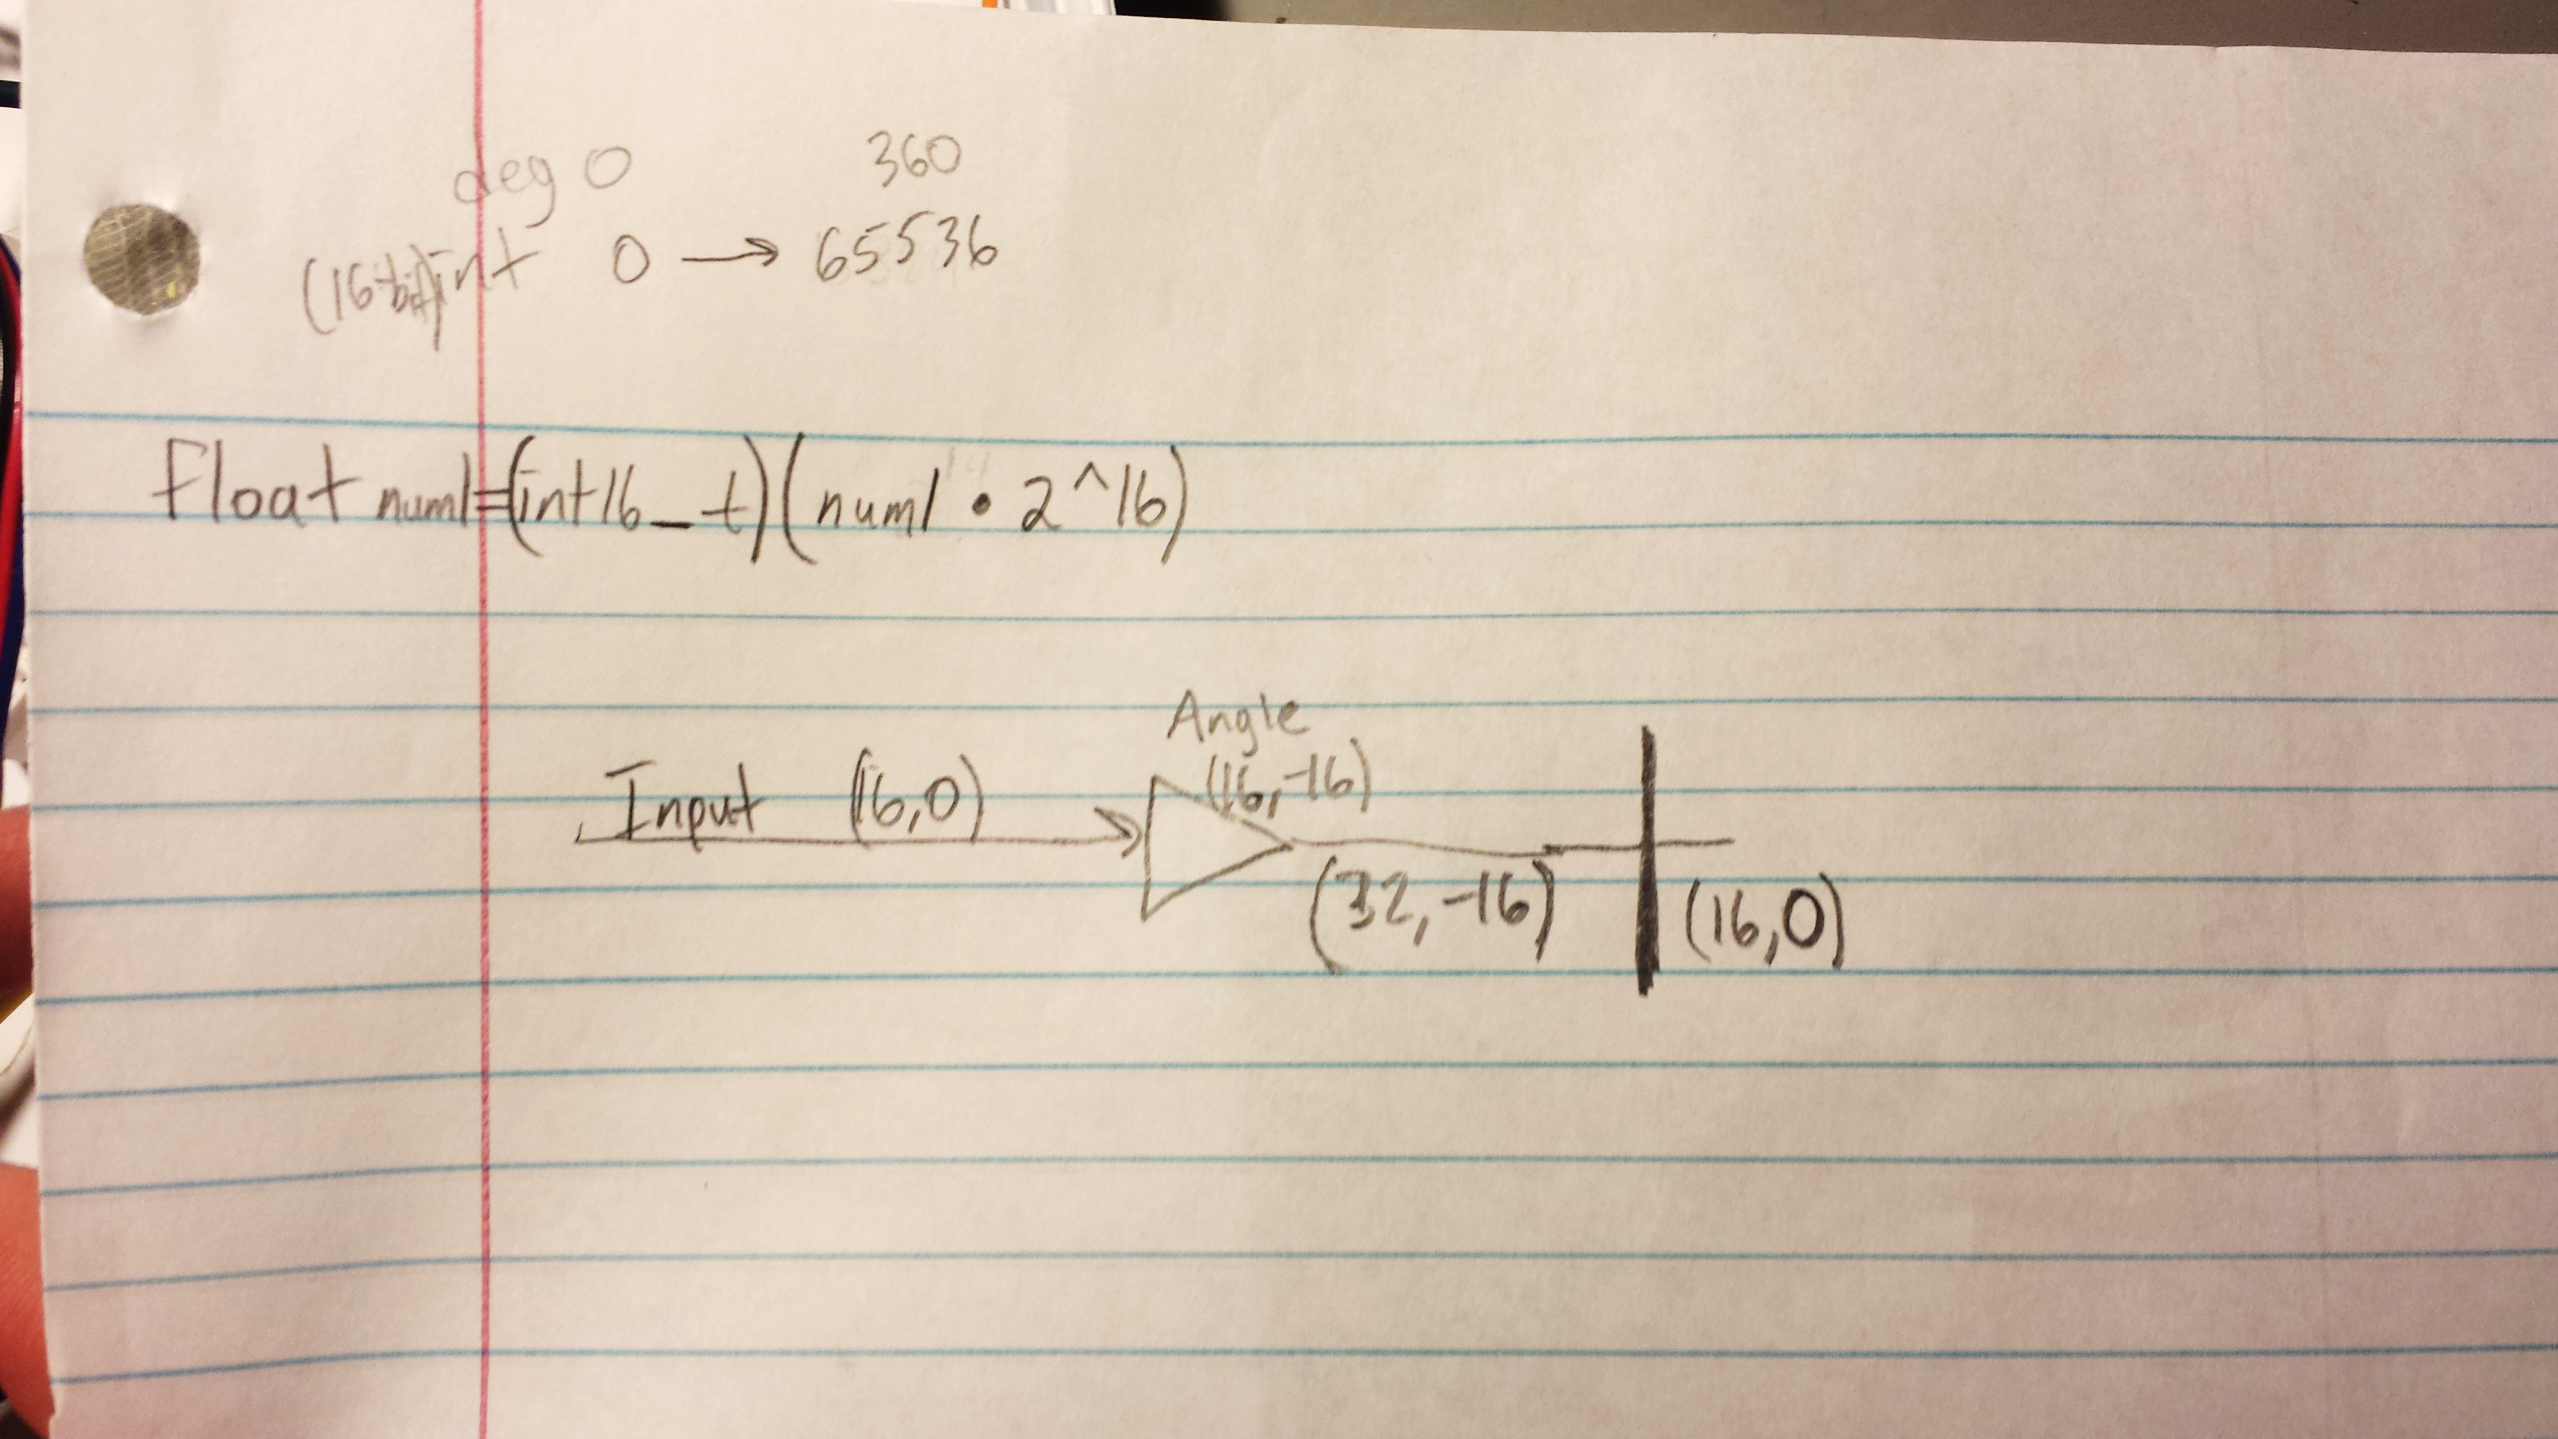 deg 0 360
(16-bit)int 0 → 65536
float num1=(int16_t)(num1 • 2^16)
Angle
Input (16,0) (16,-16)
(32,-16) (16,0)